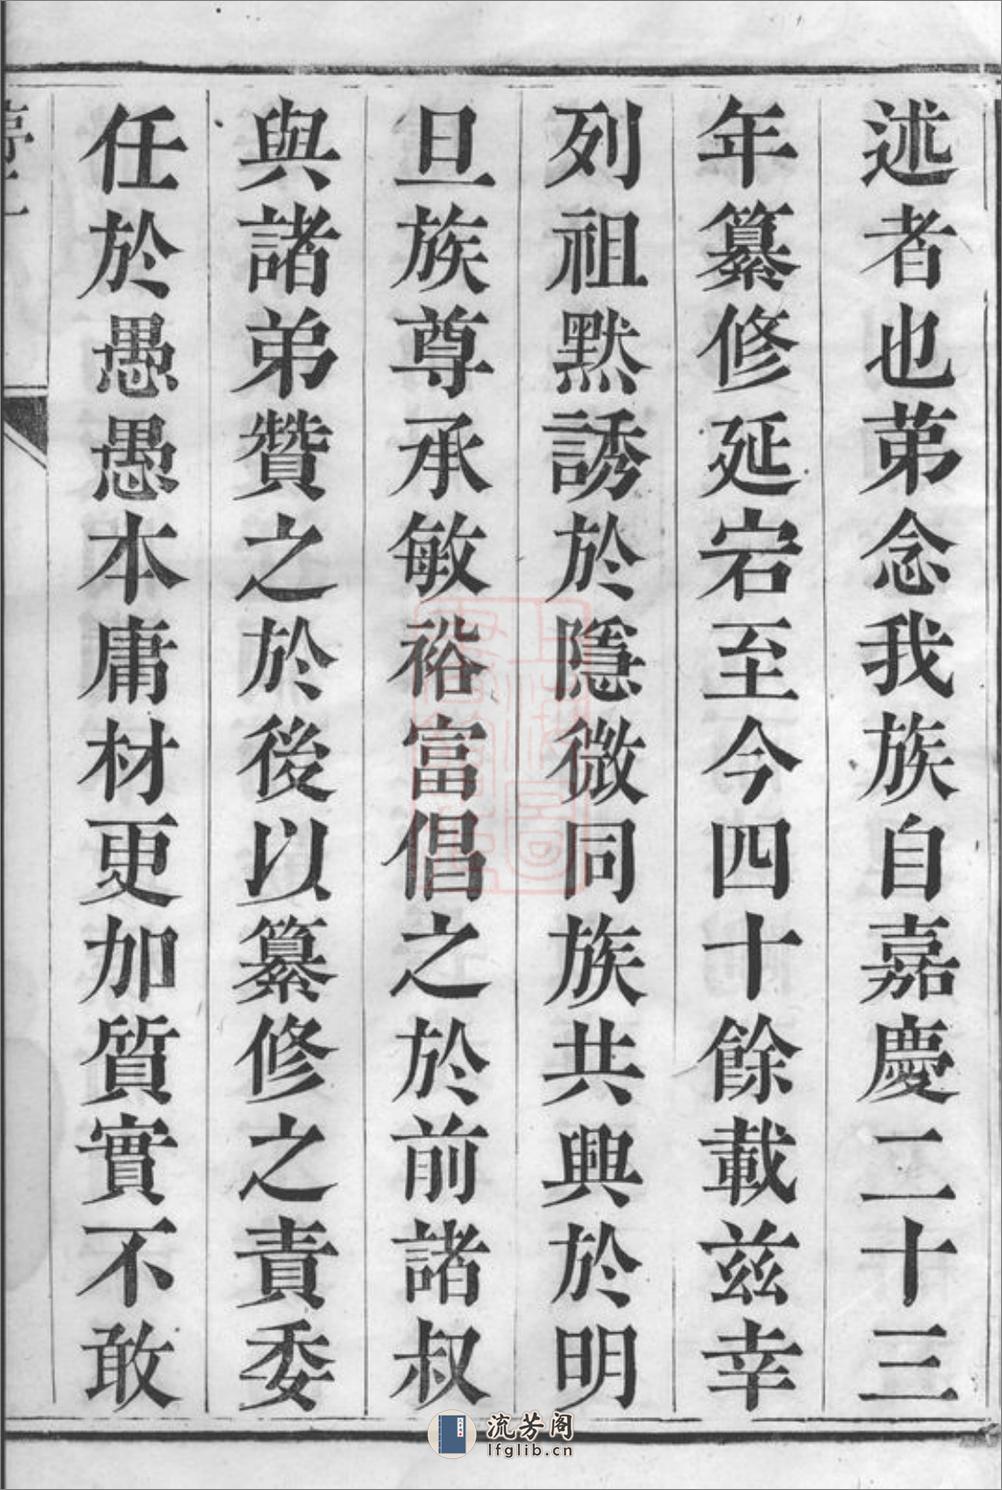 述者也苐念我族自嘉慶二十三
年纂修延宕至今四十餘載兹幸
列祖默誘於隱微同族共興於明
旦族尊承敏裕富倡之於前諸叔
與諸弟贊之於後以纂修之責委
任於愚愚本庸材更加質實不敢
流芳阁
lfglib.cn